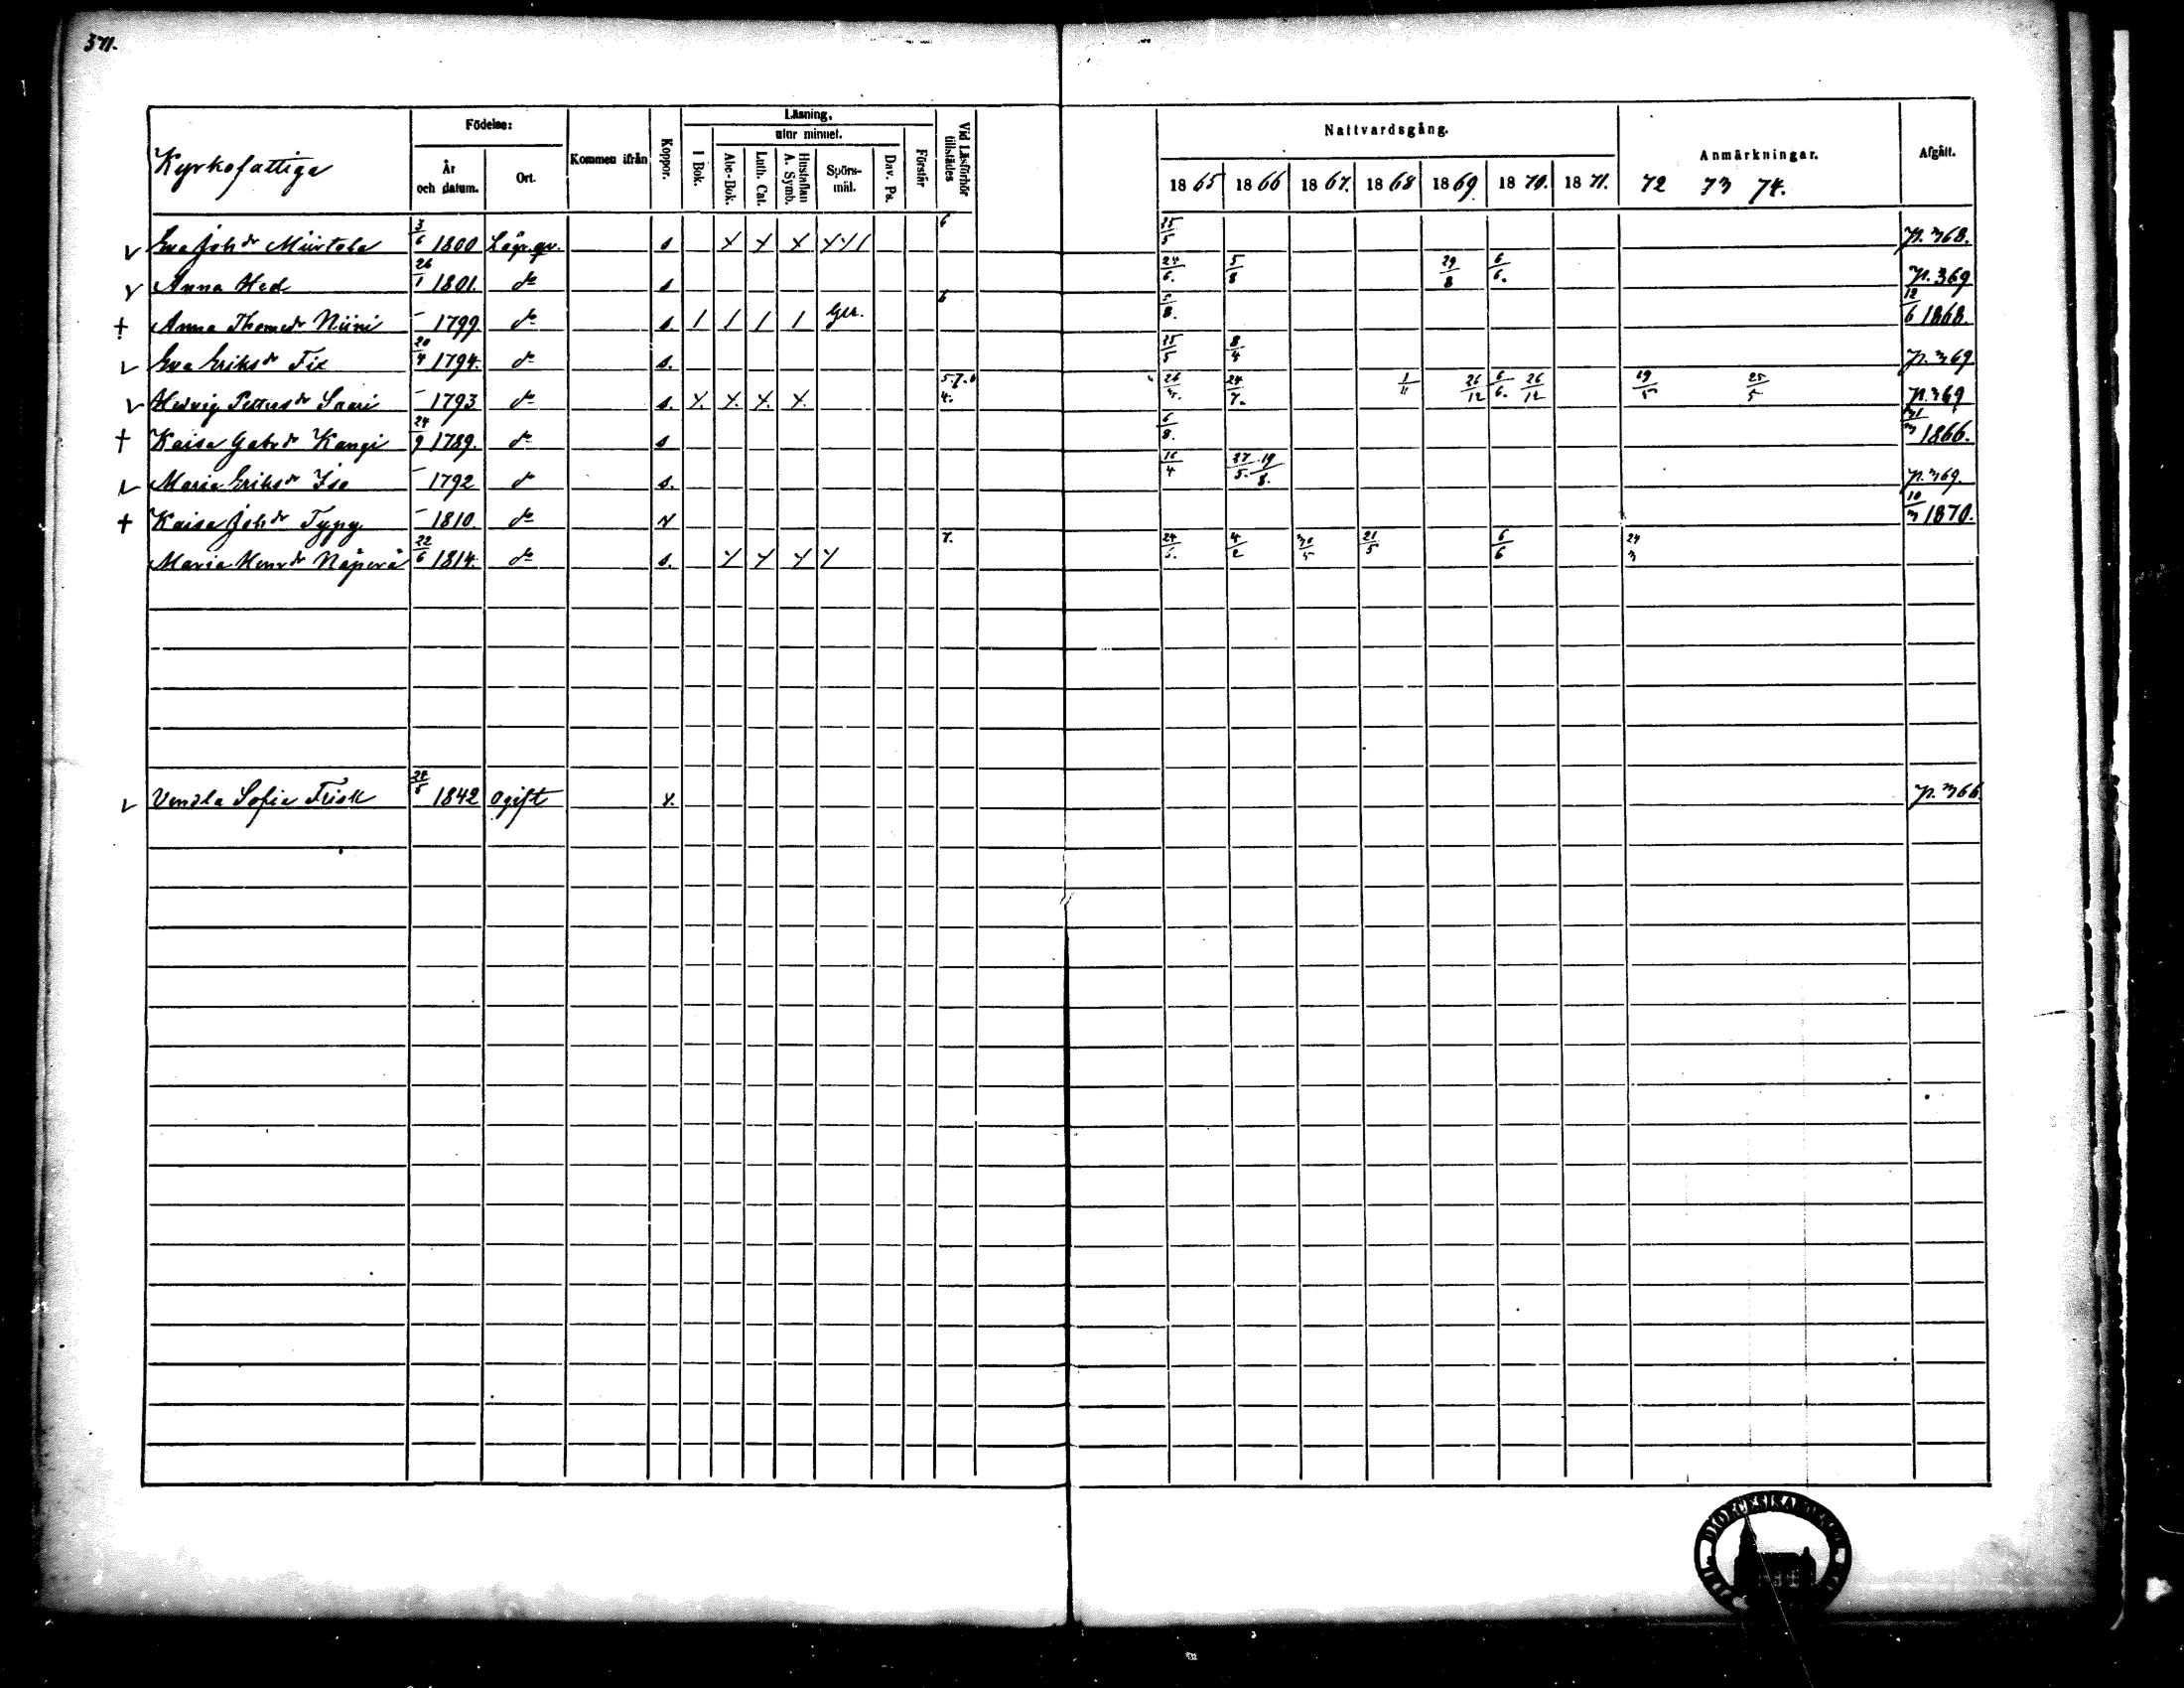 371.
Kyrkofattiga
Födelse:
År och datum.
Ort.
Kommen ifrån
Koppor.
Läsning.
I Bok.
utur minnet.
Abc-Bok.
Luth. Cat.
Hustaflan A. Symb.
Spörs-mål.
Dav. Ps.
Förstår
Vid Läsförhör tillstädes
Nattvardsgång.
1865 1866 1867. 1868 1869. 1870. 1871.
Anmärkningar.
72 73 74.
Afgått.
v Eva Joh dr Miirtola 3/6 1800 s X X X 6 25/5 p. 368.
v Anna Hed 26/1 1801. do s 24/6. 5/8 29/8 6/6. p. 369
+ Anna Thomsdr Niini – 1799 do s. / / / / 6 5/8. 12/6 1868.
v Eva Eriksdr Fix 20/4 1794. do s. 25/5 8/4 p. 369
v Hedvig Pettersdr Saari – 1793 do s. X. X. X. X. 5.7.6 4. 24/7. 1/11 26/12 6/6. 26/12 19/5 25/5 p. 369
+ Kaisa Gabrdr Kangi 24/9 1789. do s 6/8. 31/3 1866.
v Maria Eriksdr Iso – 1792 do s. 16/4 27/5. 19/8. p. 369.
+ Kaisa Johdr Typy – 1810. do v 10/3 1870.
Maria Henrdr Näperä 22/6 1814. do s. 7. 4/2 30/5 21/5 6/6 24/3
v Vendla Sofia Frisk 1842 ogift v. p. 366.